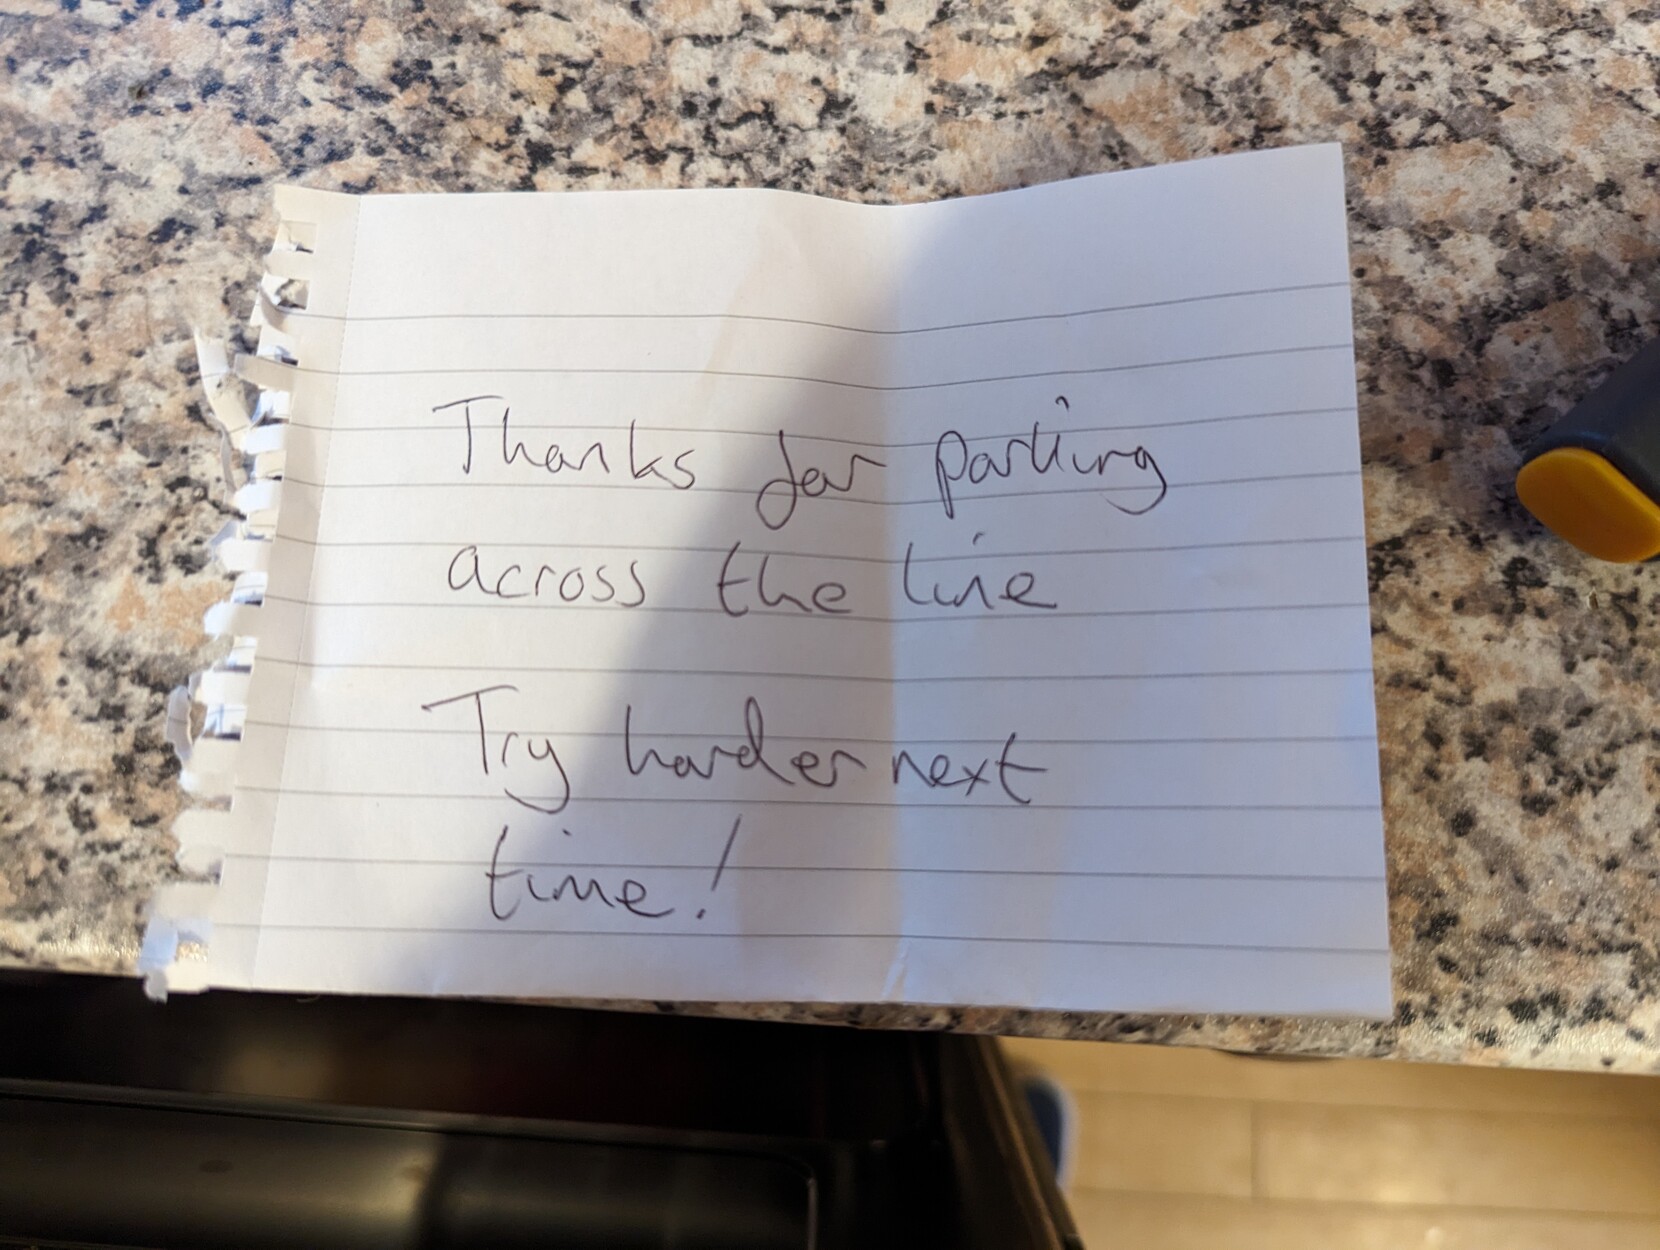 Thanks for parking
across the line
Try harder next
time!